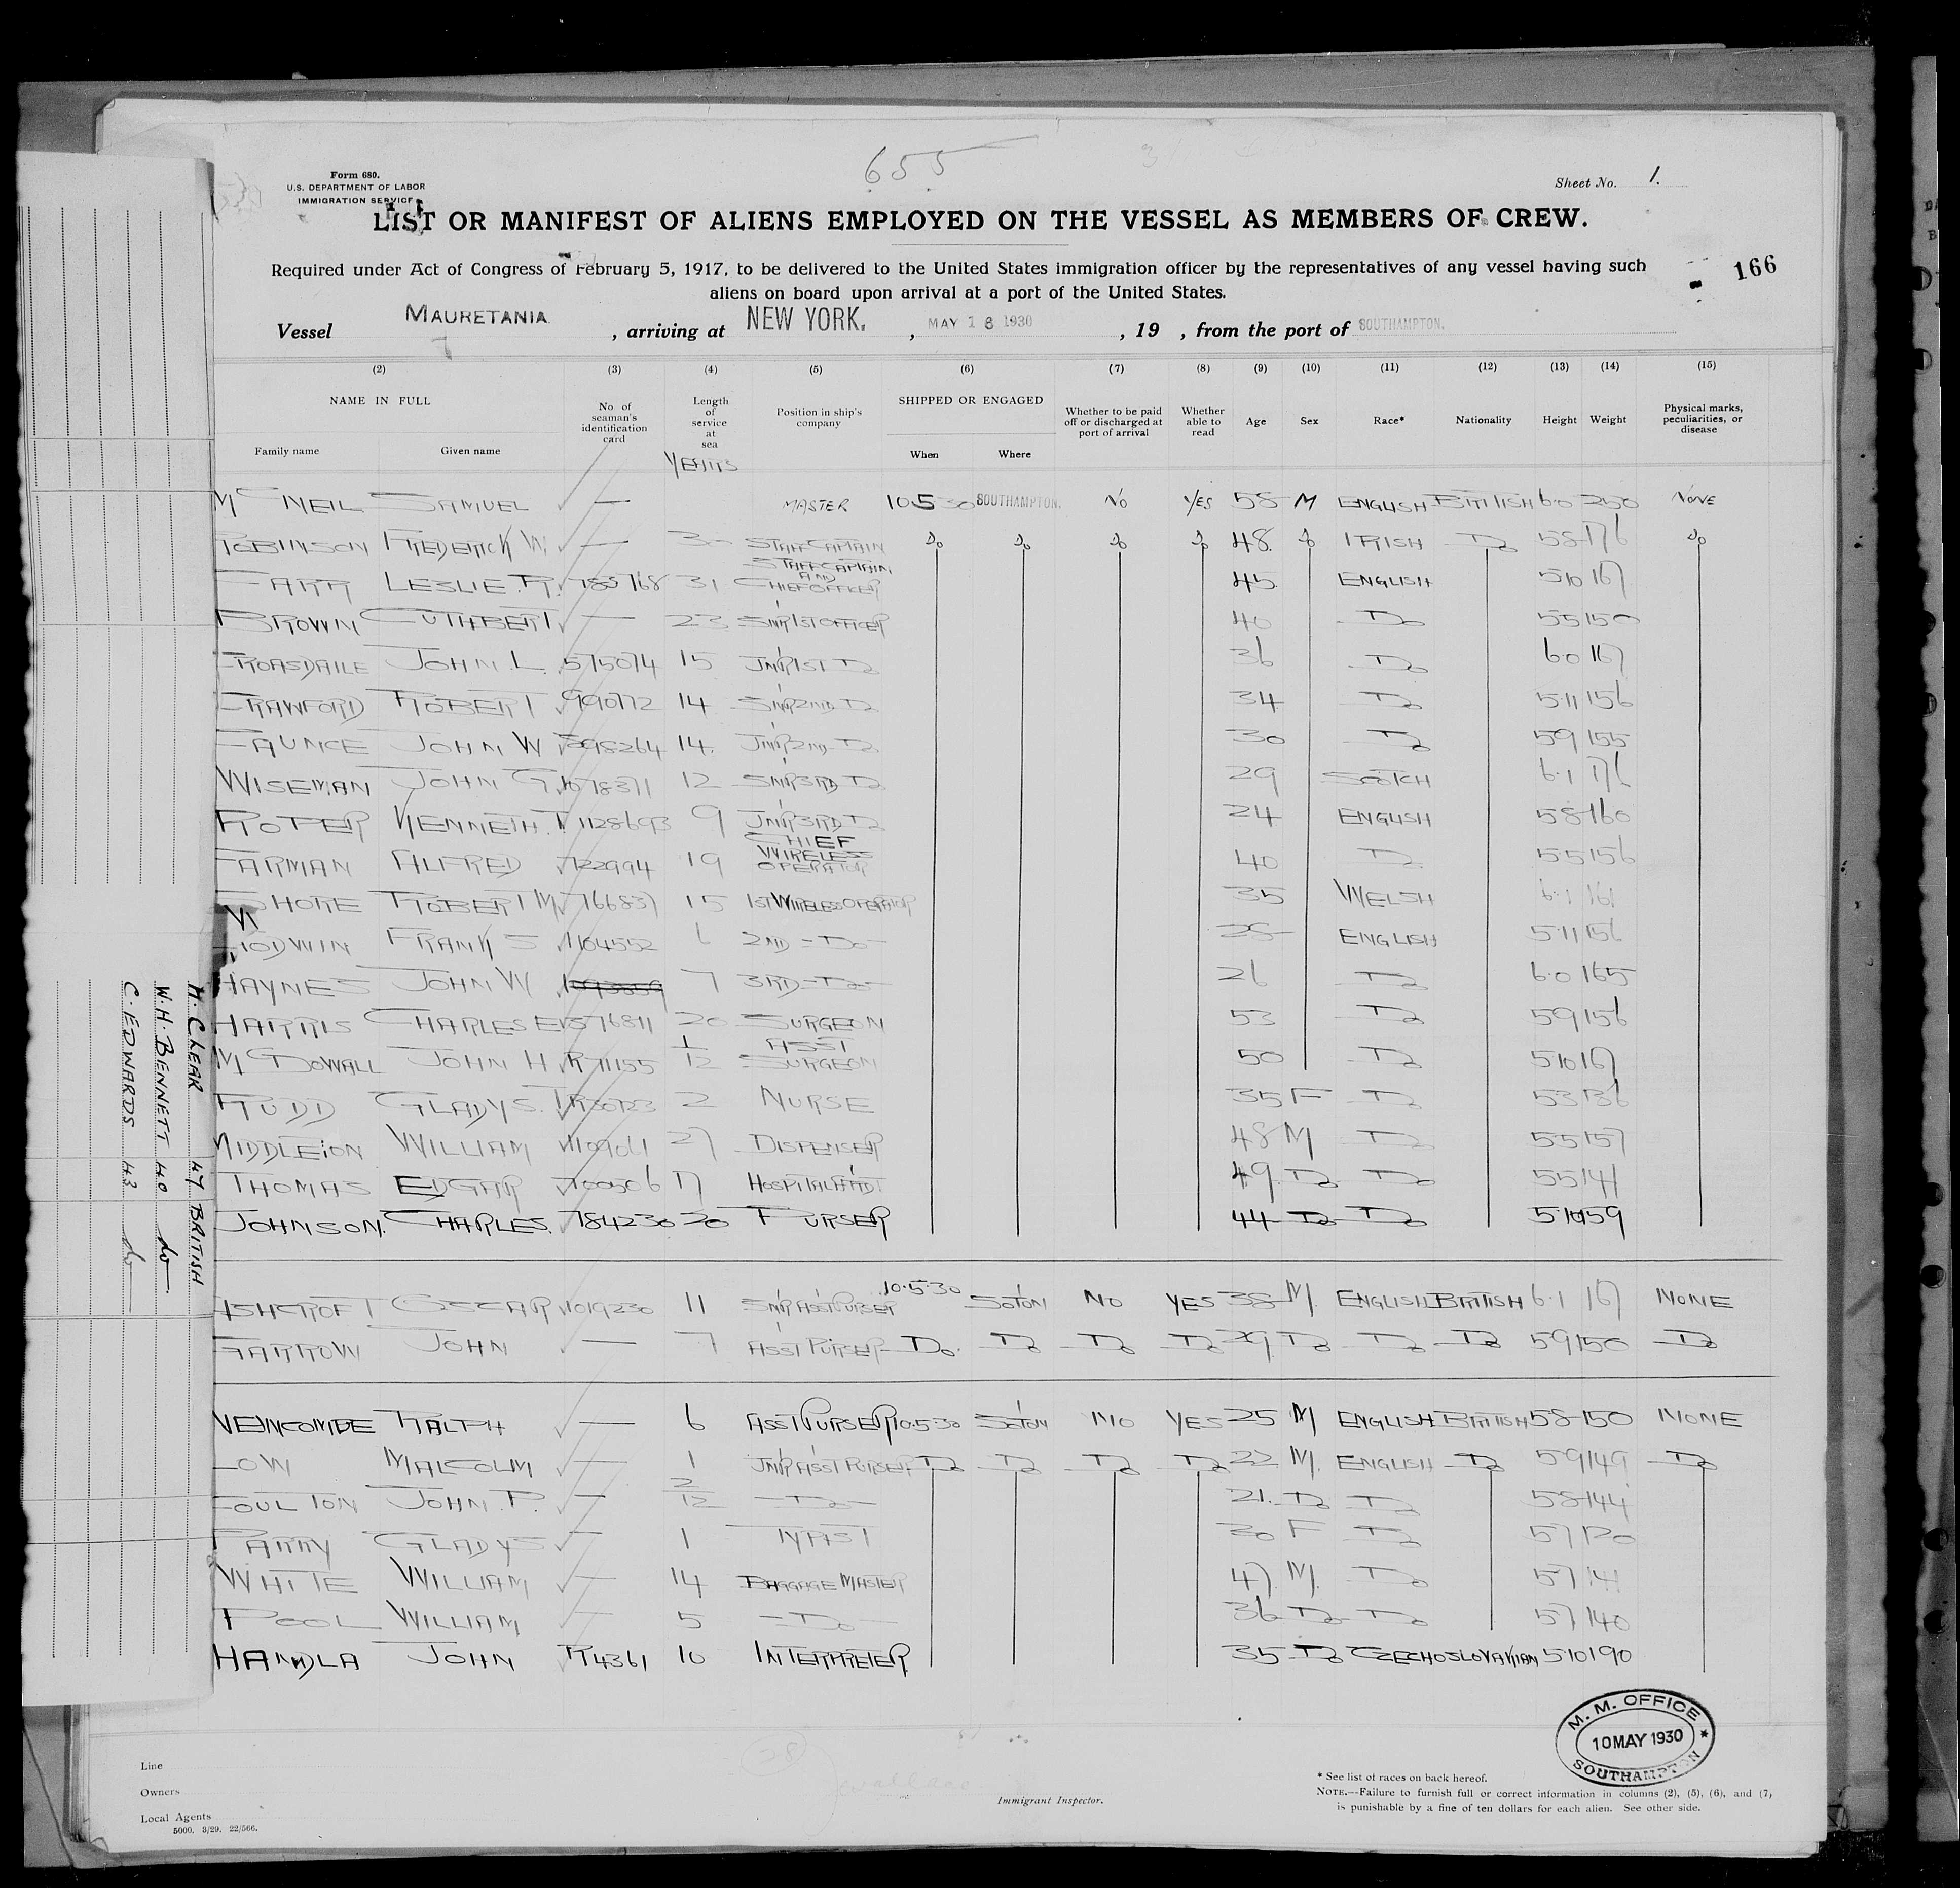 655
Form 680.
U.S. DEPARTMENT OF LABOR
IMMIGRATION SERVICE
Sheet No. 1.
LIST OR MANIFEST OF ALIENS EMPLOYED ON THE VESSEL AS MEMBERS OF CREW.
166
Required under Act of Congress of February 5, 1917, to be delivered to the United States immigration officer by the representatives of any vessel having such
aliens on board upon arrival at a port of the United States.
Vessel MAURETANIA , arriving at NEW YORK. , MAY 16 1930 , 19 , from the port of SOUTHAMPTON.
(2) (3) (4) (5) (6) (7) (8) (9) (10) (11) (12) (13) (14) (15)
NAME IN FULL Family name Given name No. of seaman's identification card Length of service at sea Position in ship's company SHIPPED OR ENGAGED When Where Whether to be paid off or discharged at port of arrival Whether able to read Age Sex Race* Nationality Height Weight Physical marks, peculiarities, or disease
YEARS
McNEIL SAMUEL — MASTER 10 5 30 SOUTHAMPTON. NO YES 58 M ENGLISH BRITISH 6.0 250 NONE
ROBINSON FREDERICK W — 30 STAFF CAPTAIN Do Do Do Do 48. Do IRISH Do 58 176 Do
LESLIE.R. 785768 31 STAFF CAPTAIN AND CHIEF OFFICER 45 ENGLISH 510 167
BROWN CUTHBERT — 23 SNR 1ST OFFICER 40 Do 55 150
JOHN L. 575074 15 JNR 1ST Do 36 Do 60 167
CRAWFORD ROBERT 990772 14 SNR 2ND Do 34 Do 5.11 156
JOHN W 14. JNR 2ND Do 30 Do 59 155
WISEMAN JOHN G. 12 SNR 3RD Do 29 SCOTCH 6.1 176
ROPER KENNETH.T 1128693 9 JNR 3RD Do 24 ENGLISH 58 160
ALFRED 722994 19 CHIEF WIRELESS OPERATOR 40 Do 55 156
SHORE ROBERT M 766837 15 1ST WIRELESS OPERATOR 35 WELSH 6.1 161
FRANK S 1104552 6 2ND Do 28 ENGLISH 5.11 156
HAYNES JOHN W 1093859 7 3RD Do 26 Do 6.0 165
HARRIS CHARLES E 20 SURGEON 53 Do 59 156
McDOWALL JOHN H R 71155 1/12 ASST SURGEON 50 Do 510 167
RUDD GLADYS. 2 NURSE 35 F Do 53 136
MIDDLETON WILLIAM 1109061 27 DISPENSER 48 M Do 55 157
THOMAS EDGAR 700506 17 HOSPITAL ATTDT 49 Do Do 55 141
JOHNSON. CHARLES. 784230 30 PURSER 44 Do Do 510 159
ASHCROFT OSCAR 1019230 11 SNR ASST PURSER 10.5.30 SOTON NO YES 38 M. ENGLISH BRITISH 6.1 167 NONE
JOHN — 7 ASST PURSER Do. Do Do Do 29. Do Do Do 59 150 Do
RALPH — 6 ASST PURSER 10.5.30 SOTON NO YES 25 M ENGLISH BRITISH 58 150 NONE
LOW MALCOLM — 1 JNR ASST PURSER Do Do Do Do 22 M. ENGLISH Do 59 149 Do
JOHN.P. — 2/12 Do 21. Do Do 58 144
PARRY GLADYS — 1 TYPIST 30 F Do 57 120
WHITE WILLIAM — 14 BAGGAGE MASTER 47. M. Do 57 141
POOL WILLIAM — 5 Do 36 Do Do 57 140
HANDLA JOHN R4361 10 INTERPRETER 35 Do CZECHOSLOVAKIAN 510 190
H. CLEAR 47 BRITISH
W.H. BENNETT 40 do
C. EDWARDS 43 do
M. M. OFFICE
10 MAY 1930
SOUTHAMPTON
Line
Owners
Local Agents
5000. 3/29. 22/566.
Immigrant Inspector.
* See list of races on back hereof.
NOTE.—Failure to furnish full or correct information in columns (2), (5), (6), and (7,
is punishable by a fine of ten dollars for each alien. See other side.